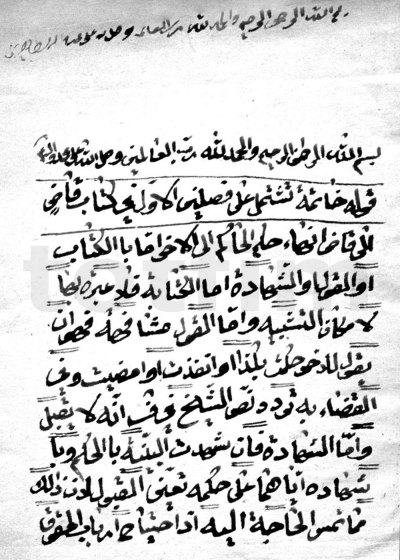 بسم الله الرحمن الرحيم والحمد لله رب العالمين وصلى الله على محمد وآله
بسم الله الرحمن الرحيم والحمد لله رب العالمين وصلى الله على محمد وآله
قوله خاتمة تشتمل على فصلين الاول في كتاب قاض
الى قاض انهاء حكم الحاكم الى الاخر اما بالكتاب
او القول او الشهادة اما الكتابة فلا عبرة بها
لامكان التشبيه واما القول مشافهة فهو ان
يقول للاخر حكمت بكذا او انفذت او امضيت وفي
القضاء به تردد نص الشيخ في ف انه لا يقبل
واما الشهادة فان شهدت البينة بالحكم وبا
شهاده اياهما على حكمه تعين القبول لان ذلك
مما تمس الحاجة اليه اذ احتياج ارباب الحقوق